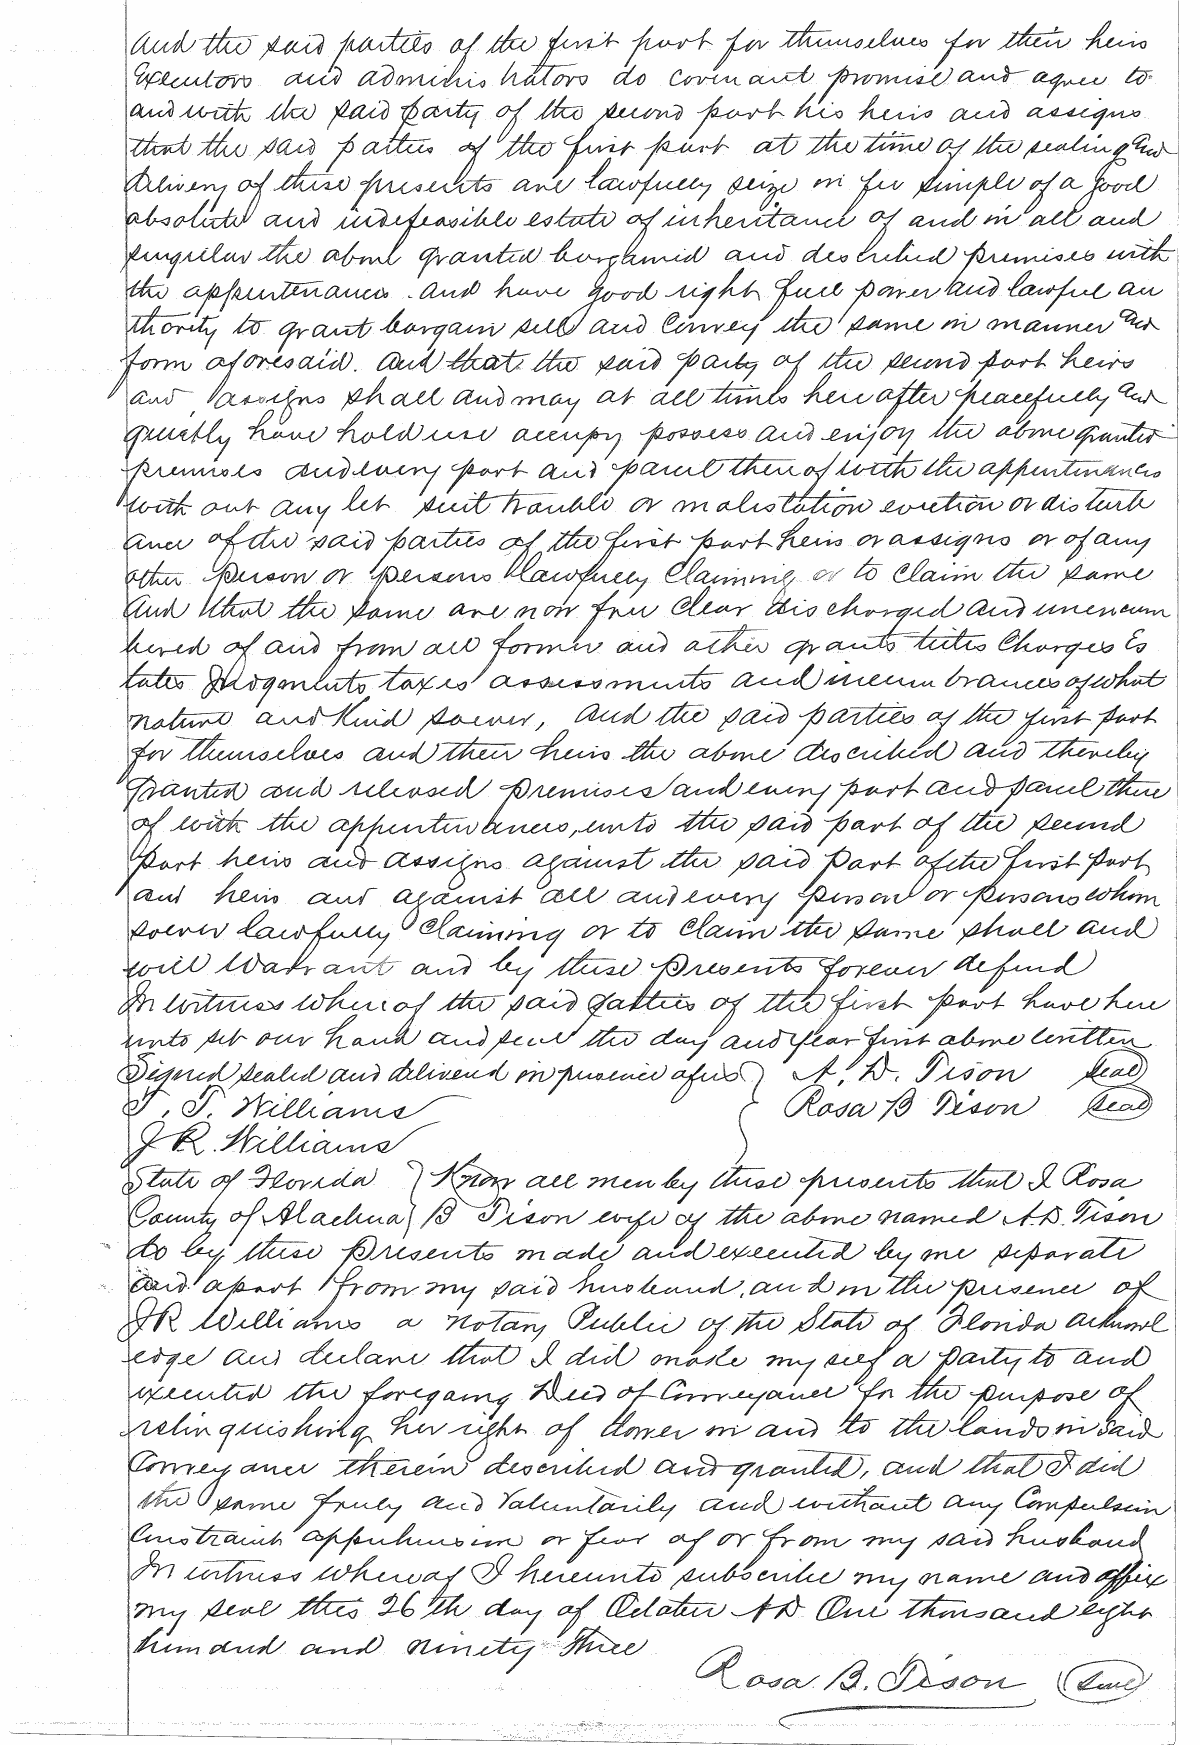 And the said parties of the first part for themselves for their heirs
Executors and adminis trators do covenant promise and agree to
and with the said party of the second part his heirs and assigns
that the said parties of the first part at the time of the sealing and
delivery of these presents are lawfully seize in fee simple of a good
absolute and indefeasible estate of inheritance of and in all and
singular the above granted bargained and described premises with
the appurtenances. And have good right full power and lawful au
thority to grant bargain sell and Convey the same in manner and
form aforesaid. And that the said party of the second part heirs
and assigns shall and may at all times here after peacefully and
quietly have hold use occupy possess and enjoy the above granted
premises and every part and parcel there of with the appurtenances
with out any let suit trouble or molestation eviction or disturb
ance of the said parties of the first part heirs or assigns or of any
other person or persons lawfully Claiming or to Claim the same
And that the same are now free Clear discharged and unencum
bered of and from all former and other grants titles Charges Es
tates Judgments taxes assessments and incum brances of what
nature and Kind soever, And the said parties of the first part
for themselves and their heirs the above described and thereby
granted and released premises and every part and parcel there
of with the appurtenances, unto the said part of the second
part heirs and assigns against the said part of the first part
and heirs and against all and every person or persons whom
soever lawfully Claiming or to Claim the same shall and
will Warrant and by these presents forever defend
In witness where of the said parties of the first part have here
unto set our hand and seal the day and year first above written
Signed sealed and delivered in presence of us } A. D. Tison Seal
T. T. Williams Rosa B Tison Seal
J R. Williams
State of Florida } Know all men by these presents that I Rosa
County of Alachua } B Tison wife of the above named A. D. Tison
do by these presents made and executed by me separate
and apart from my said husband, and in the presence of
JR Williams a Notary Public of the State of Florida acknowl
edge and declare that I did make my self a party to and
executed the foregoing Deed of Conveyance for the purpose of
relinquishing her right of dower in and to the lands in said
Conveyance therein described and granted, and that I did
the same freely and Voluntarily and without any Compulsion
Constraint apprehension or fear of or from my said husband
In witness whereof I hereunto subscribe my name and affix
my seal this 26th day of October A D One thousand eight
hundred and ninety three
Rosa B. Tison Seal